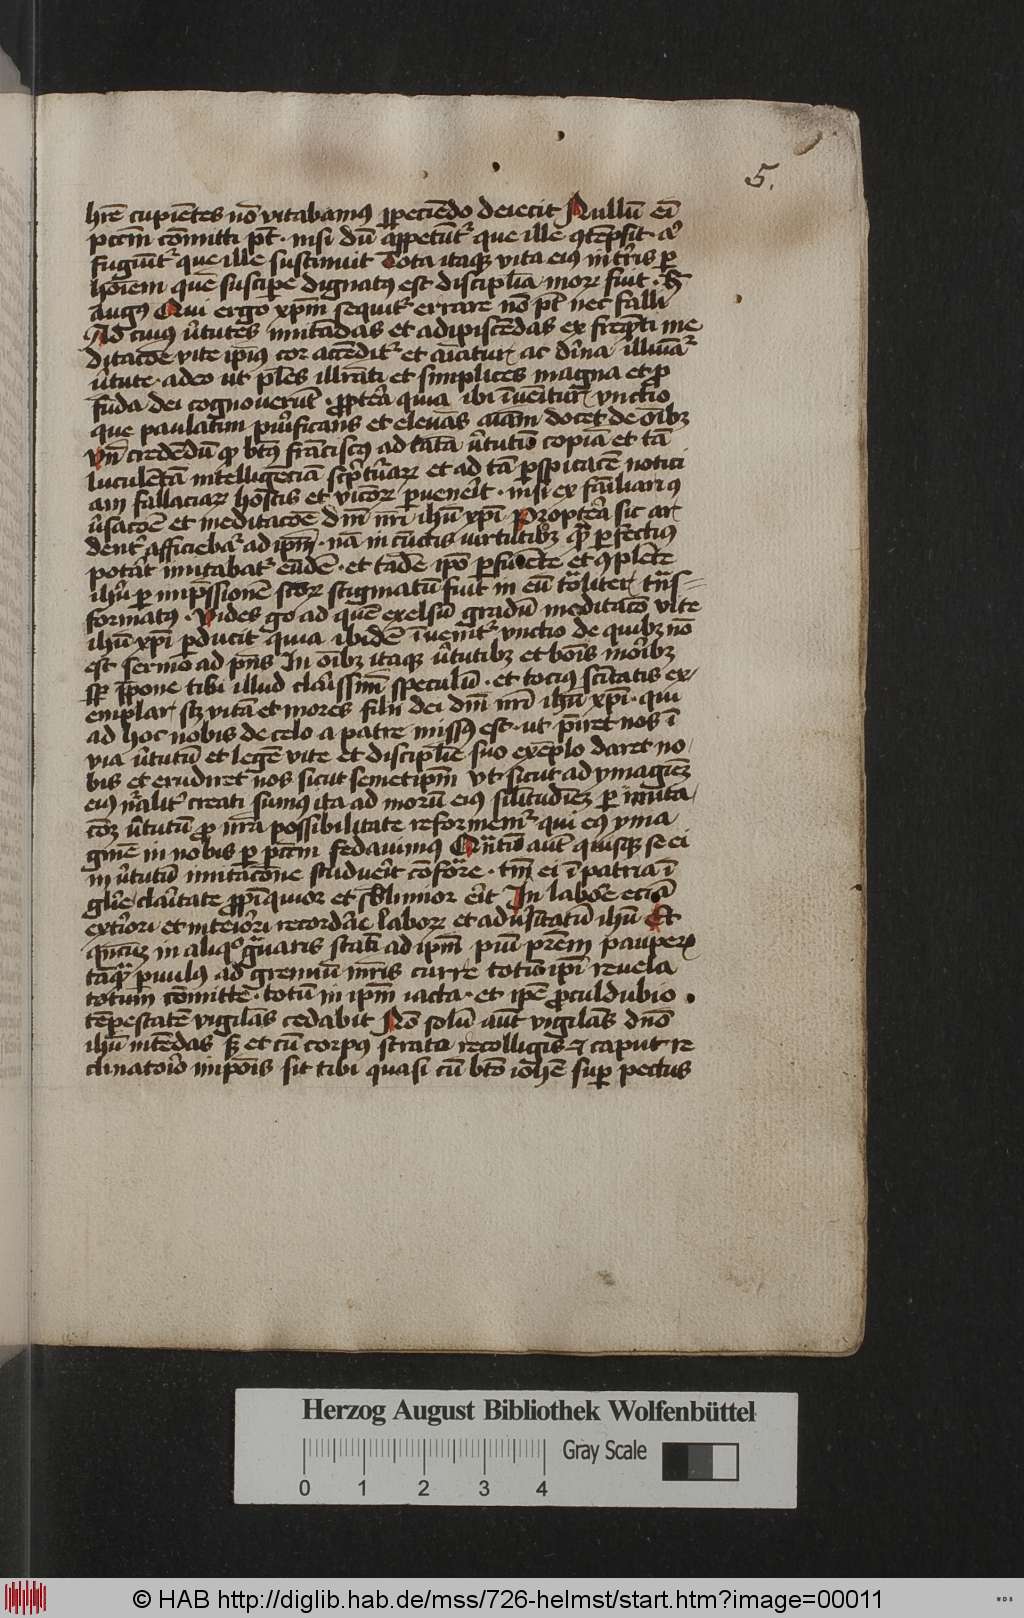 5.
hr̄e cupiētes nō vitabamꝰ ꝓiciēdo deiecit Nullū em̄
pctm̄ cōmitti pt̄ · nisi dū appetūtʳ que ille 9tēpsit · aut
fugiūtʳ que ille sustinuit Tota itaqꝫ vita eiꝰ in tr̄is ꝑ
hōiem quē suscipe dignatꝰ est disciplīa moꝝ fuit · H̄
augꝰ Qui ergo xp̄m sequitʳ errare nō pt̄ nec falli
Ad cuiꝰ v̄tutes imitādas et adipiscēdas ex freq̄nti me
ditacōe vite ip̄iꝰ cor accēditʳ et aīatur ac dīna illuīatʳ
v̄tute · adeo ut ples illr̄ati et simplices magna et ꝓ
fūda dei cognoverūt · ꝓptea quia ibi īvenitur vnctio
que paulatim purificans et elevās aīam docet de oībꝫ
vn̄ credēdū ꝙ bt̄ꝰ frāciscꝰ ad tātā v̄tutis copiā et tā
luculētā intelligēciā scptūraꝝ et ad tā ꝑspicacē notici
am fallaciaꝝ hostis et vicioꝝ ꝑveneīt · nisi ex fāiliari 9
v̄sacōe et meditacōe dnī nrī ihū xp̄i Proptea sic ar
dentʳ afficiebatʳ ad ip̄m · nā in cūctis virtutibꝫ qͣ ꝑfectiꝰ
potāt imitabatʳ eūdē · et tādē ip̄o ꝑficiēte et 9plēte
ihū ꝑ imp̄ssionē scoꝝ stigmatū fuit in eū tōtaliter tn̄s-
formatꝰ · Vides go ad quē excelsū gradū meditaco vite
ihū xp̄i ꝑducit quia ibidē īvenitʳ vnctio de quibꝫ nō
est sermo ad pn̄s In oībꝫ itaqꝫ v̄tutibꝫ et bonis moribꝫ
sꝑ p̄pone tibi illud clarissim̄ speculū · et tocius scītatis ex
emplar sꝫ vitā et mores filii dei dnī nrī ihū xp̄i · qui
ad hoc nobis de celo a patre missꝰ est · ut p̄iret nos ī
via v̄tutū et legē vite et disciplīe suo exēplo daret no
bis et erudiret nos sicut semetip̄m vt sicut ad ymaginē
eiꝰ nāliter creati sumus ita ad moꝝ eiꝰ silītudinē ꝑ imita
cōꝫ v̄tutū ꝓ nr̄a possibilitate reformemʳ qui eiꝰ yma
ginē in nobis ꝑ pctm̄ fedavimꝰ Qn̄tū aut̄ quisqꝫ se ei
in v̄tutū imitacōne studueīt cōformare · tm̄ ei ī patria ī
gl̄ie claītate ꝓpinquior et sublimior erit In labore eciā
extiori et interiori recordare laboꝝ et adv̄sitatū ihū Et
qn̄cūꝫ in aliqͦ gͣvaris statī ad ip̄m piū prēm pauperū
tāqͣ ꝑvulꝰ ad gremiū mr̄is curre totū ip̄i revela
totum cōmitte · totū in ip̄m iacta · et ip̄e ꝓculdubio
tēpestatē vigilās cedabit Nō solū aut̄ vigilās dnō
ihū intēdas sꝫ et cū corpꝰ stratū recolligis et caput re
clinatorio inponis sit tibi quasi cū bt̄o iohē suꝑ pectus
Herzog August Bibliothek Wolfenbüttel
Gray Scale
0 1 2 3 4
© HAB http://diglib.hab.de/mss/726-helmst/start.htm?image=00011